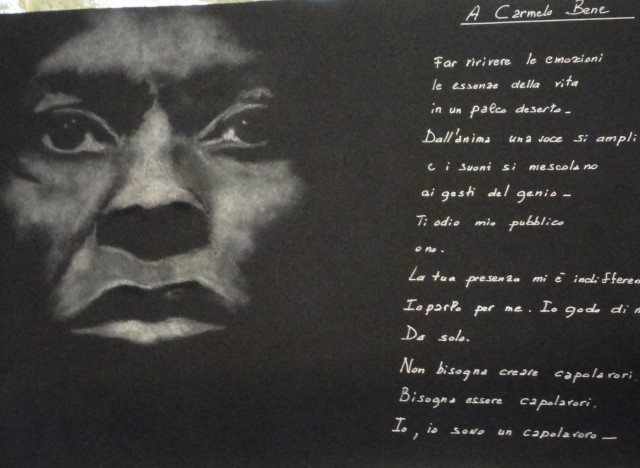 A Carmelo Bene
Far rivivere le emozioni
le essenze della vita
in un palco deserto -
Dall'anima una voce si ampli
e i suoni si mescolano
ai gesti del genio -
Ti odio mio pubblico
o no.
La tua presenza mi è indifferen
Io parlo per me. Io godo di m
Da solo.
Non bisogna creare capolavori.
Bisogna essere capolavori.
Io, io sono un capolavoro -